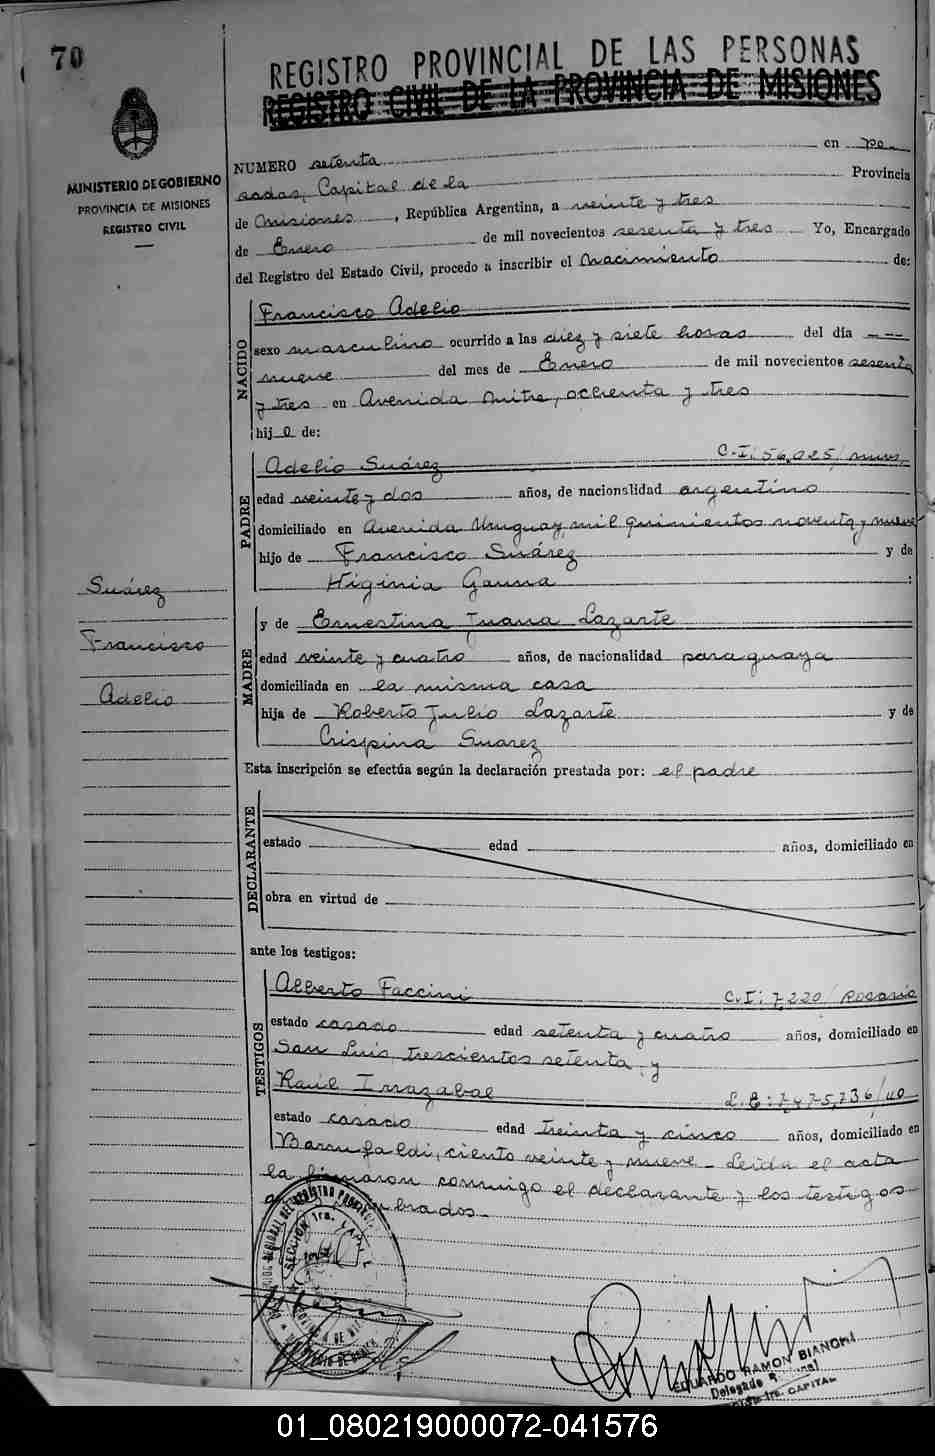 70
REGISTRO PROVINCIAL DE LAS PERSONAS
REGISTRO CIVIL DE LA PROVINCIA DE MISIONES
MINISTERIO DE GOBIERNO
PROVINCIA DE MISIONES
REGISTRO CIVIL
NUMERO setenta en Po-
sadas, Capital de la Provincia
de Misiones, República Argentina, a veinte y tres
de Enero de mil novecientos sesenta y tres Yo, Encargado
del Registro del Estado Civil, procedo a inscribir el Nacimiento de:
NACIDO
Francisco Adelio
sexo masculino ocurrido a las diez y siete horas del día ---
nueve del mes de Enero de mil novecientos sesenta
y tres en Avenida Mitre, ochenta y tres
hijo de:
PADRE
Adelio Suárez C.I: 56,025/mnes,
edad veinte y dos años, de nacionalidad argentino
domiciliado en Avenida Uruguay, mil quinientos noventa y nueve
hijo de Francisco Suárez y de
Higinia Gauna :
Suárez
Francisco
Adelio
MADRE
y de Ernestina Juana Lazarte
edad veinte y cuatro años, de nacionalidad paraguaya
domiciliada en la misma casa
hija de Roberto Julio Lazarte y de
Crispina Suarez
Esta inscripción se efectúa según la declaración prestada por: el padre
DECLARANTE
estado edad años, domiciliado en
obra en virtud de
ante los testigos:
TESTIGOS
Alberto Faccini C.I: 7220/Rosario
estado casado edad setenta y cuatro años, domiciliado en
San Luis trescientos setenta, y
Raúl Irrazabal L.E: 7,475,736/
estado casado edad treinta y cinco años, domiciliado en
Barrufaldi, ciento veinte y nueve - Leída el acta
la firmaron conmigo el declarante y los testigos
brados.-
SECCION 1ra.
EDUARDO RAMON BIANCHI
Delegado
1ra. CAPITAL
01_080219000072-041576